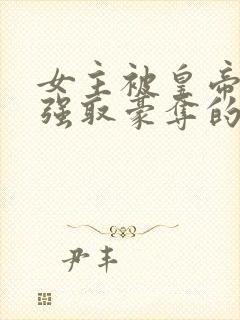 女主被皇帝
强取豪夺的
尹丰